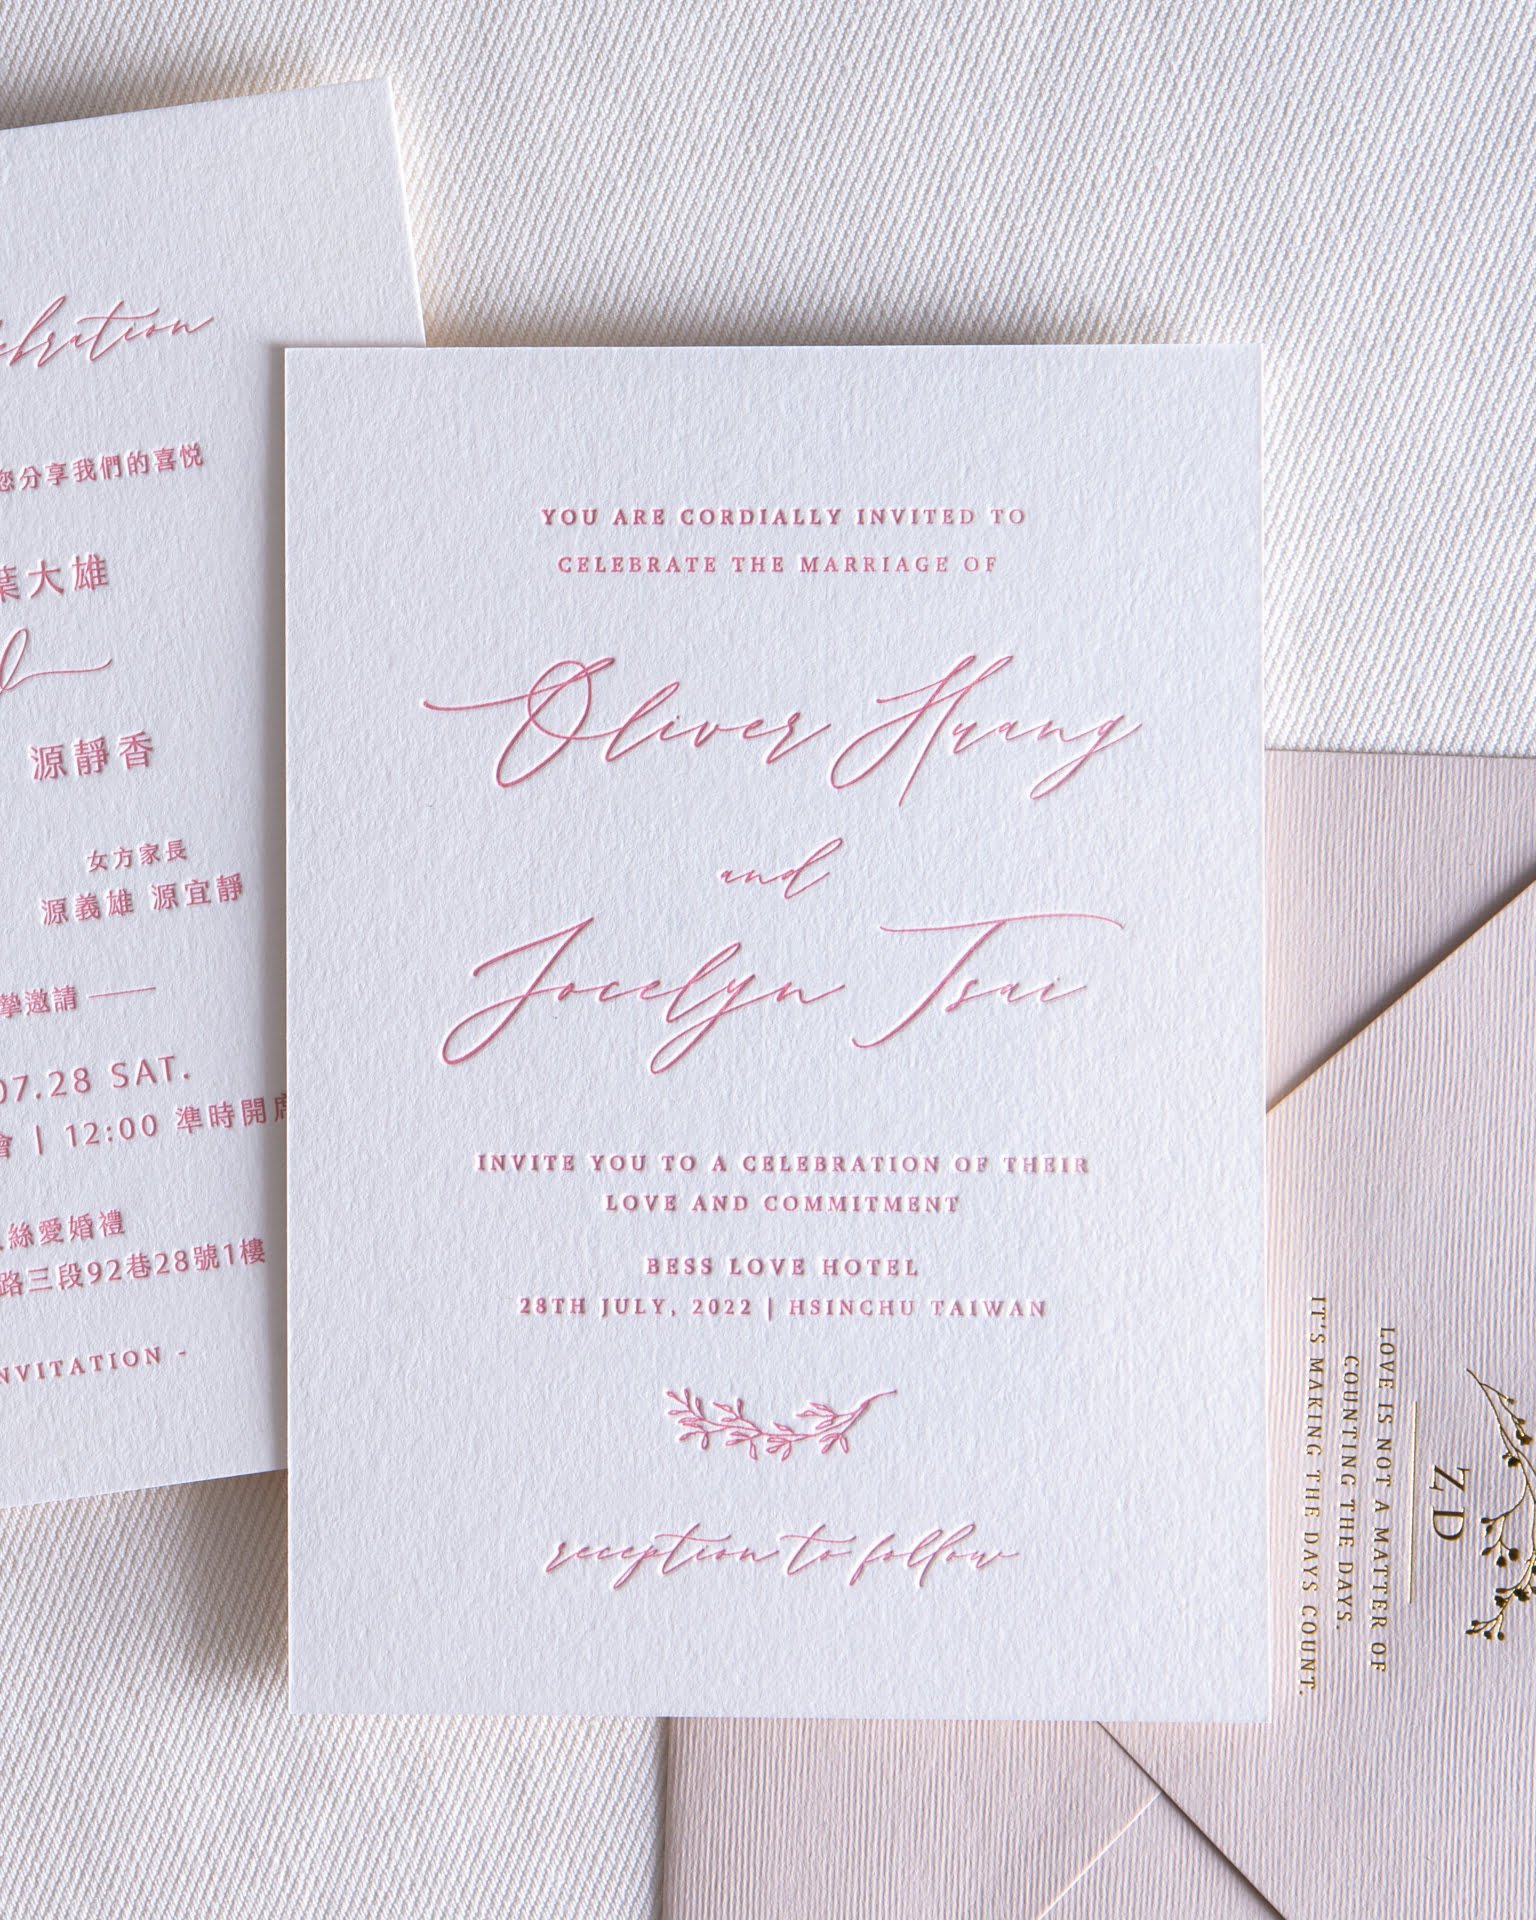 您分享我們的喜悅
大雄
源靜香
女方家長
源義雄 源宜靜
摯邀請
07.28 SAT.
會 | 12:00 準時開席
絲愛婚禮
路三段92巷28號1樓
YOU ARE CORDIALLY INVITED TO
CELEBRATE THE MARRIAGE OF
Oliver Huang
and
Jocelyn Tsai
INVITE YOU TO A CELEBRATION OF THEIR
LOVE AND COMMITMENT
BESS LOVE HOTEL
28TH JULY, 2022 | HSINCHU TAIWAN
reception to follow
ZD
LOVE IS NOT A MATTER OF
COUNTING THE DAYS.
IT'S MAKING THE DAYS COUNT.